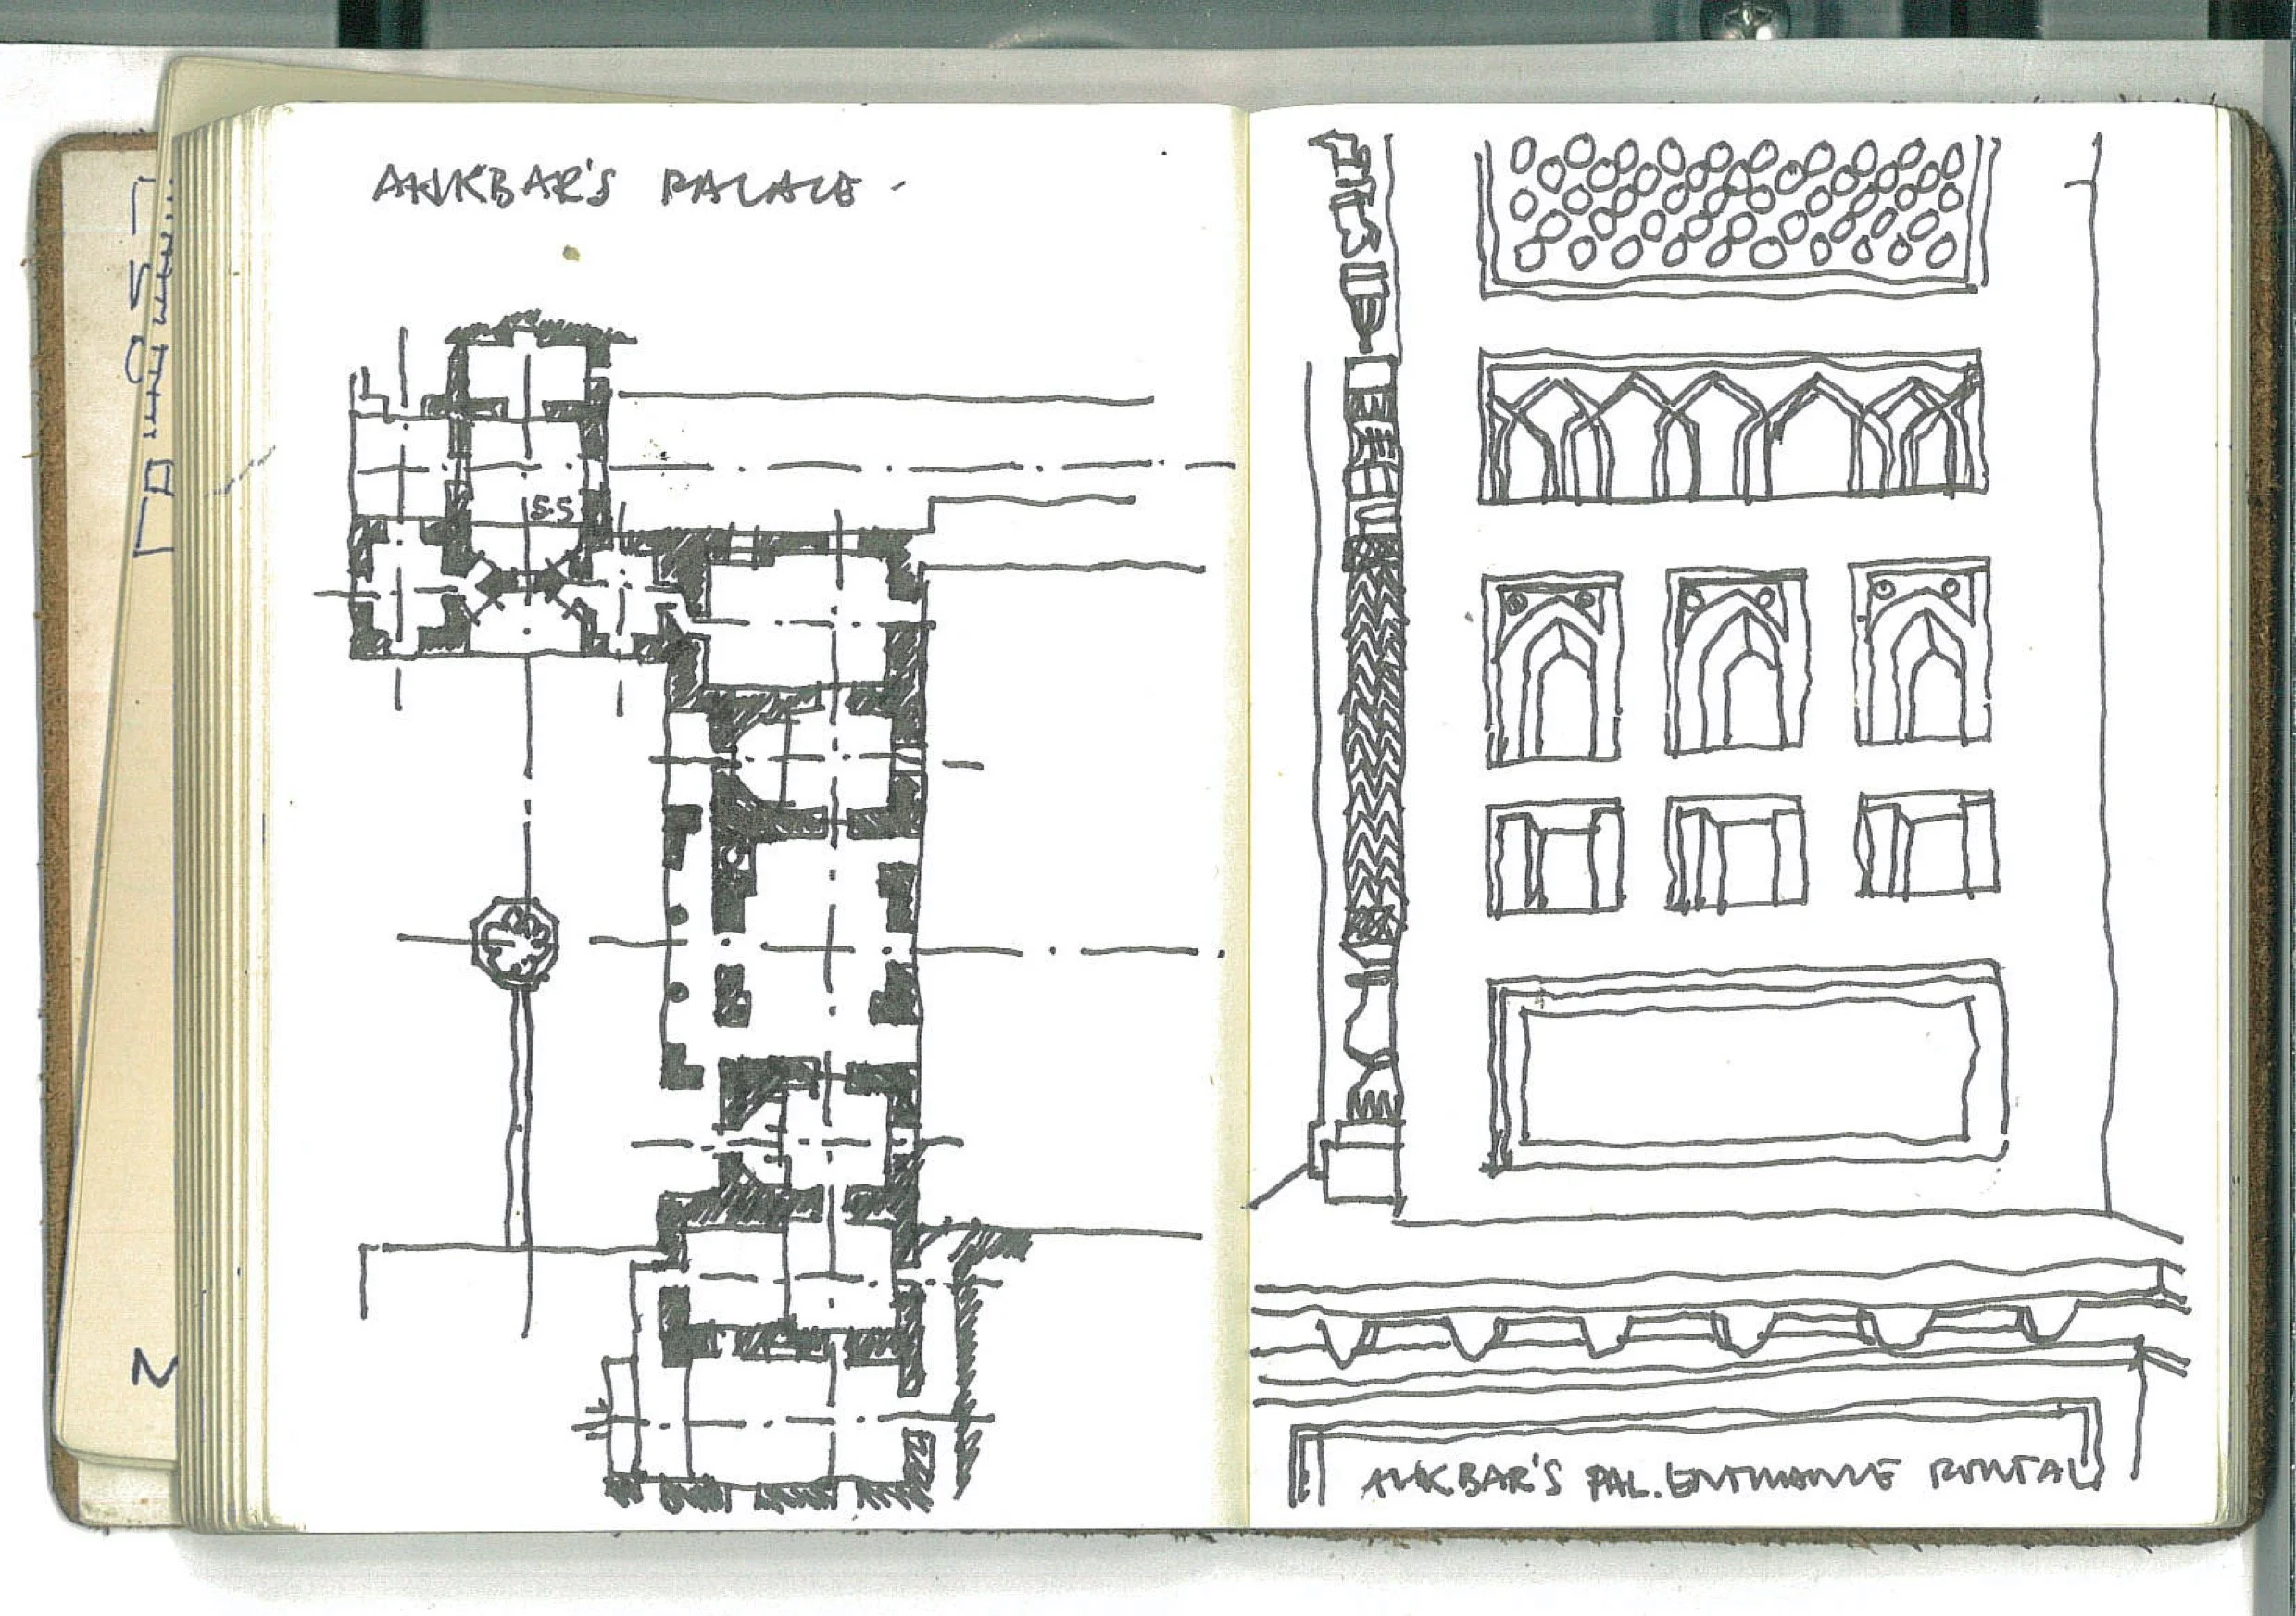 AHKBAR'S PALACE -
5.5
AHKBAR'S PAL. ENTRANCE PORTAL